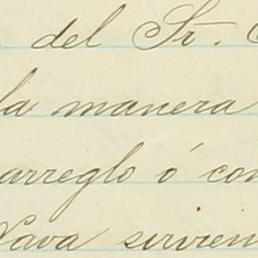 del Sr.
la manera
arreglo ó con
Nava sirvien